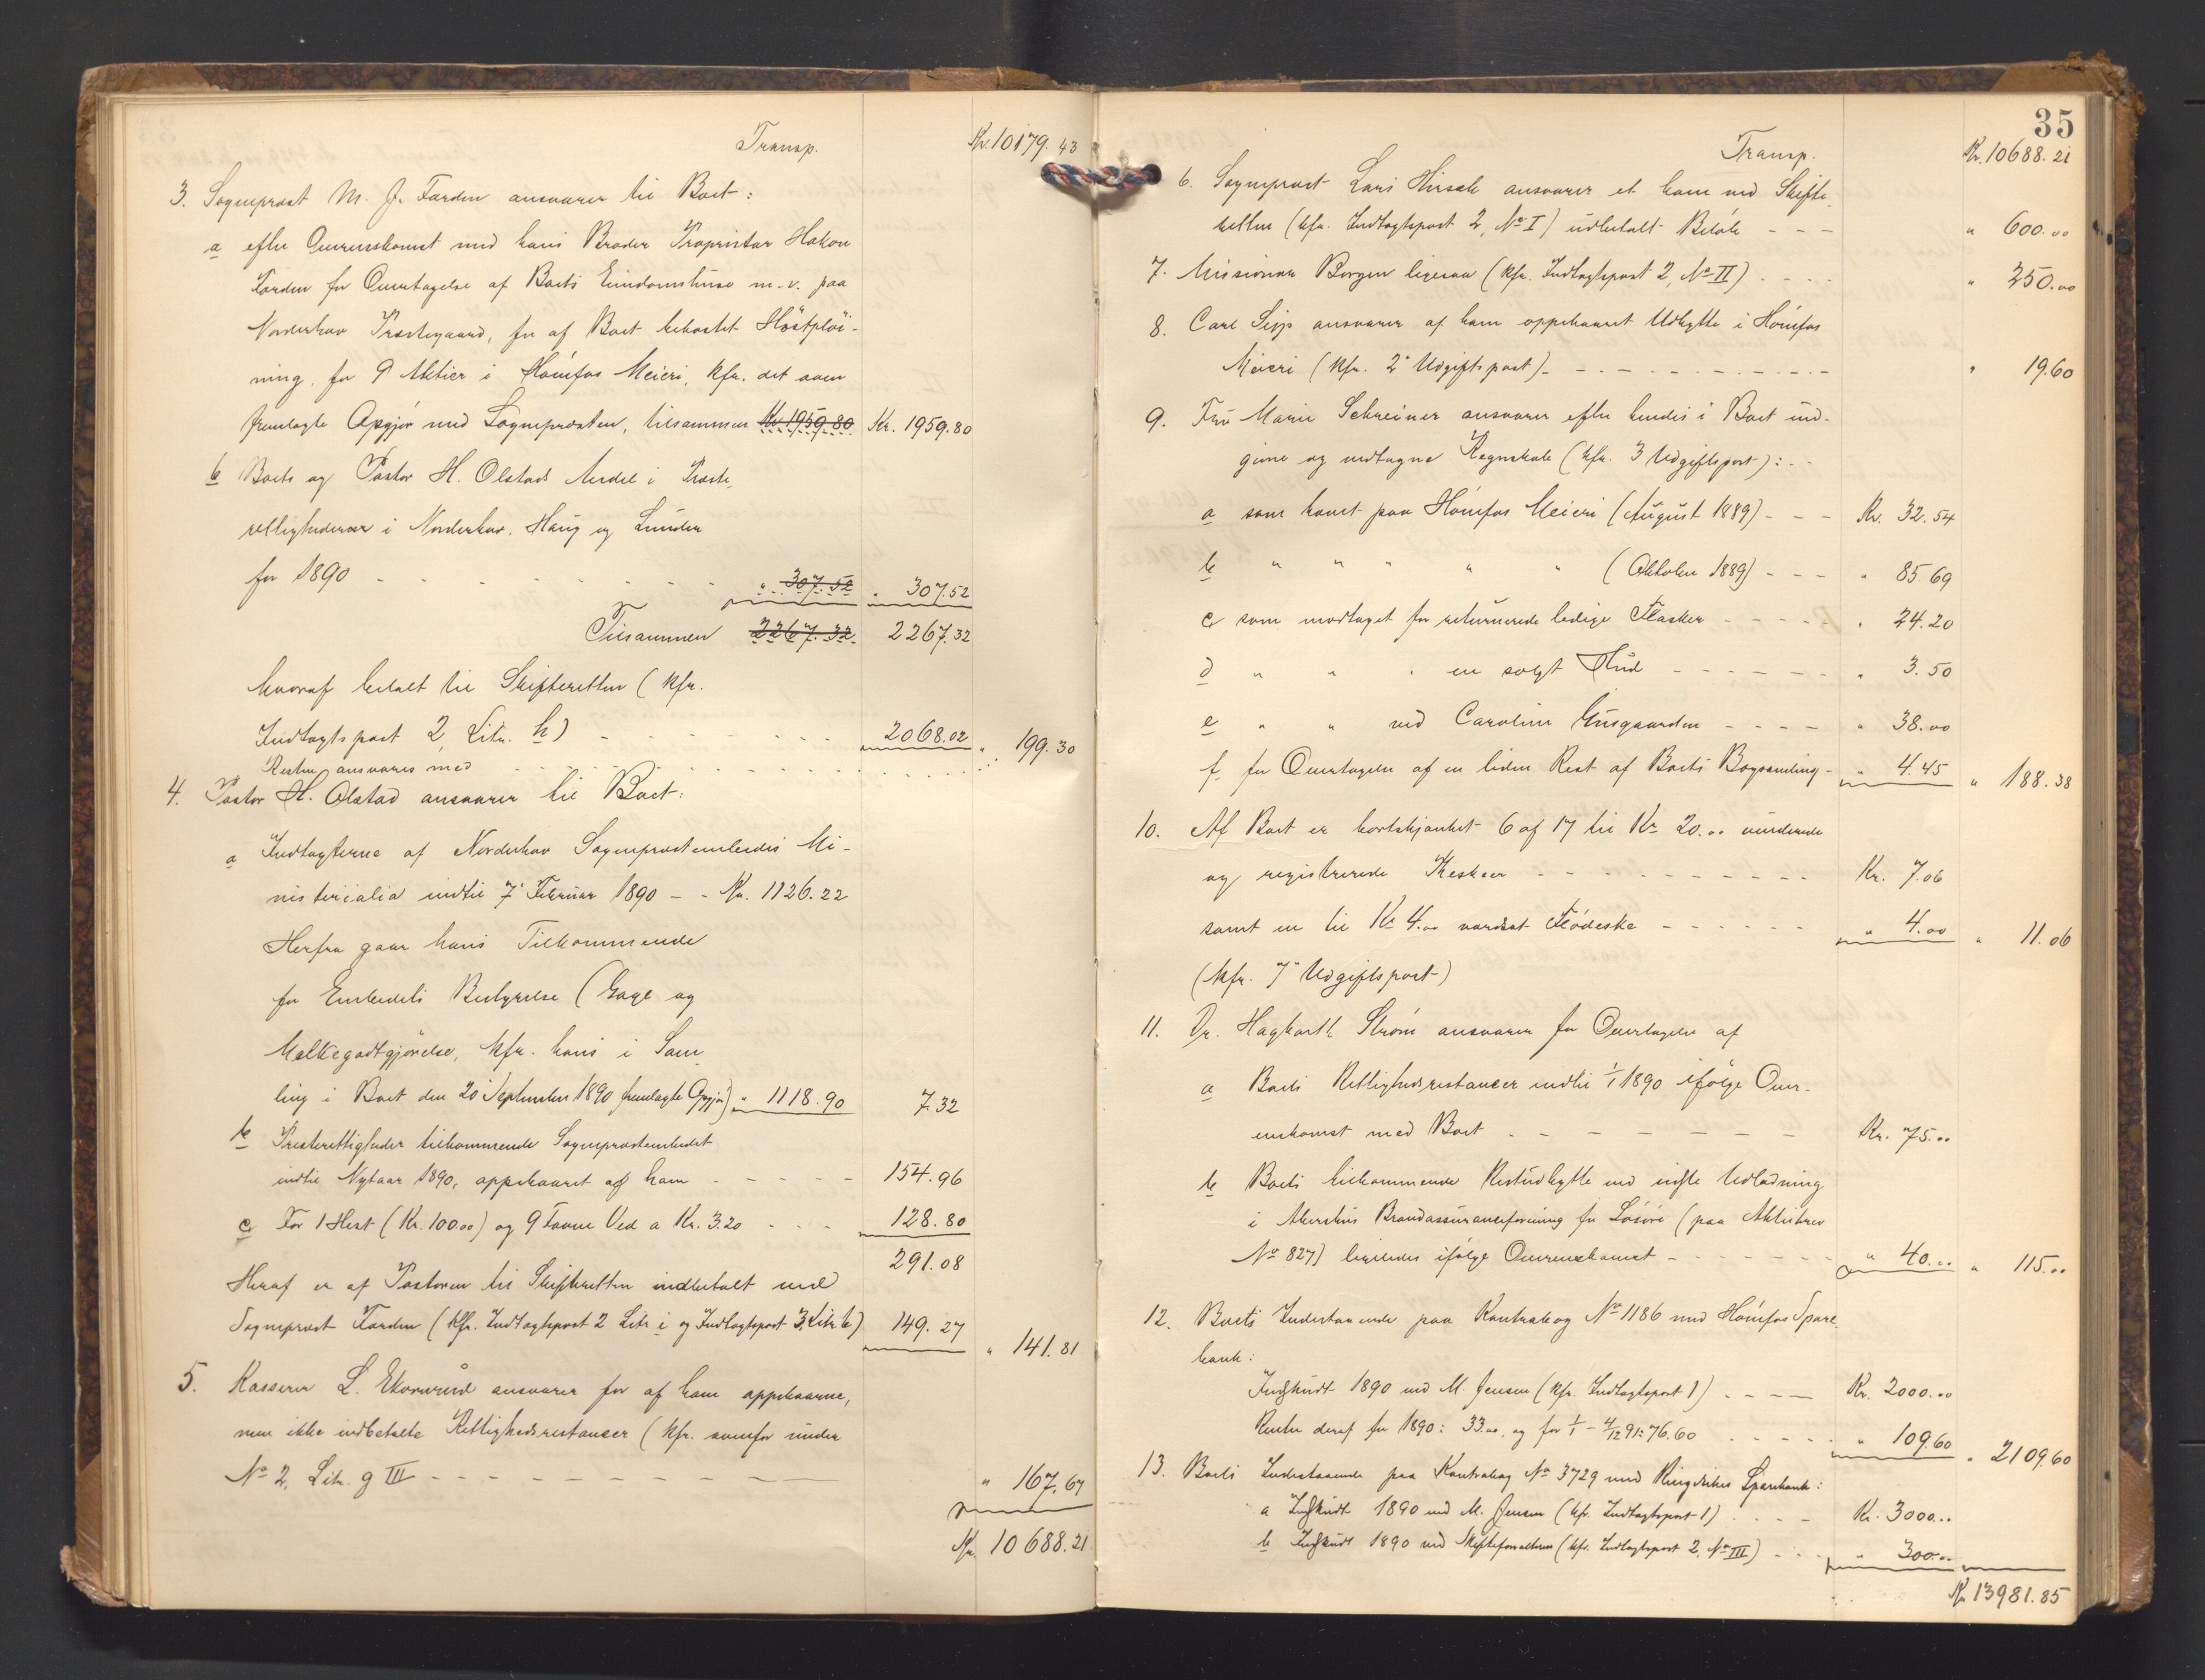 Transp. Kr. 10179.43
3. Sogneprest M. J. Færden ansvarer til Boet:
a efter Overenskomst med hans Broder Proprietær Hakon
Færden for Overtagelse af Boets Eiendomshuse m. v. paa
Norderhov Præstegaard, for af Boet bekostet Höstplöi-
ning, for 9 Aktier i Hönefos Meieri, kfr. det oven
fremlagte Opgjör med Sognepresten, tilsammen Kr 1959.80 Kr. 1959.80
b Boets og Pastor H. Olstads Andel i Præste-
rettighederne i Norderhov, Haug og Lunder
for 1890 - - - - - - " 307.52 " 307.52
Tilsammen 2267.32 2267.32
hvoraf betalt til Skifteretten (kfr.
Indtægtspost 2, Litr. h) - - - - 2068.02
Resten ansvares med - - - - " 199.30
4. Pastor H. Olstad ansvarer til Boet:
a Indtægterne af Norderhov Sogneprestembedes Mi-
nisterialia indtil 7 Februar 1890 - - Kr. 1126.22
Herfra gaar hans Tilkommende
for Embedets Bestyrelse (Gage og
Melkegodtgjörelse, kfr. hans i Sam-
ling i Boet den 20 September 1890 fremlagte Opgjör) " 1118.90 7.32
b Presterettigheder tilkommende Sogneprestembedet
indtil Nytaar 1890, oppebaaret af ham - - - - - 154.96
c For 1 Hest (Kr. 100.00) og 9 Favne Ved a Kr. 3.20 - - - 128.80
291.08
Heraf er af Pastoren til Skifteretten indbetalt ved
Sogneprest Færden (kfr. Indtægtspost 2 Litr i og Indtægtspost 3, Litr b) 149.27
" 141.81
5. Kasserer L. Ekornrud ansvarer for af ham oppebaarne,
men ikke indbetalte Rettighedsrestancer (kfr. ovenfor under
No 2, Litr. g III - - - - - - - " 167.67
Kr. 10688.21
35
Transp. Kr. 10688.21
6. Sogneprest Lars Hirsch ansvarer et ham ved Skifte-
retten (kfr. Indtægtspost 2, No I) udbetalt Belöb - - - " 600.00
7. Missionær Borgen ligesaa (kfr. Indtægtspost 2, No II) - - - " 250.00
8. Carl Sejp ansvarer af ham oppebaaret Udbytte i Hönefos
Meieri (kfr. 2' Udgiftspost) - - - - - - - " 19.60
9. Fru Marie Schreiner ansvarer efter hendes i Boet ind-
givne og vedtagne Regnskab (kfr. 3 Udgiftspost): -
a som hævet paa Hönefos Meieri (August 1889) - - - Kr. 32.54
b " " " " " (Oktober 1889) - - - " 85.69
c som modtaget for returnerede ledige Flasker - - - - " 24.20
d " " " en solgt Hud - - - - - - " 3.50
e " " ved Caroline Gusgaarden - - - - " 38.00
f. for Overtagelse af en liden Rest af Boets Bogsamling - " 4.45 " 188.38
10. Af Boet er bortskjænket 6 af 17 til Kr 20.00 vurderede
og registrerede Keskar - - - - - - - - Kr. 7.06
samt en til Kr 4.00 værdsat Flödeske - - - - - - " 4.00 " 11.06
(kfr. 7' Udgiftspost)
11. Dr. Hagbarth Ström ansvarer for Overtagelse af
a Boets Rettighedsrestancer indtil 1/1 1890 ifölge Over-
enskomst med Boet - - - - - - - Kr. 75.00
b Boets tilkommende Restudbytte ved sidste Udlodning
i Akershus Brandassuranceforening for Lösöre (paa Aktiebrev
No 827) ligeledes ifölge Overenskomst - - - - - " 40.00 " 115.00
12. Boets Indestaaende paa Kontrabog No 1186 med Hönefos Spare-
bank:
Indskudt 1890 ved M. Jensen (kfr. Indtægtspost 1) - - - - Kr. 2000.00
Renter deraf for 1890: 33.00, og for 1/1 - 4/12 91: 76.60 - - - - " 109.60 " 2109.60
13. Boets Indestaaende paa Kontrabog No 3729 med Ringerikes Sparebank:
a Indskudt 1890 ved M. Jensen (kfr. Indtægtspost 1) - - - - Kr. 3000.00
b Indskudt 1890 ved Skifteforvalteren (kfr. Indtægtspost 2, No III) - - - " 300.00
Kr. 13981.85